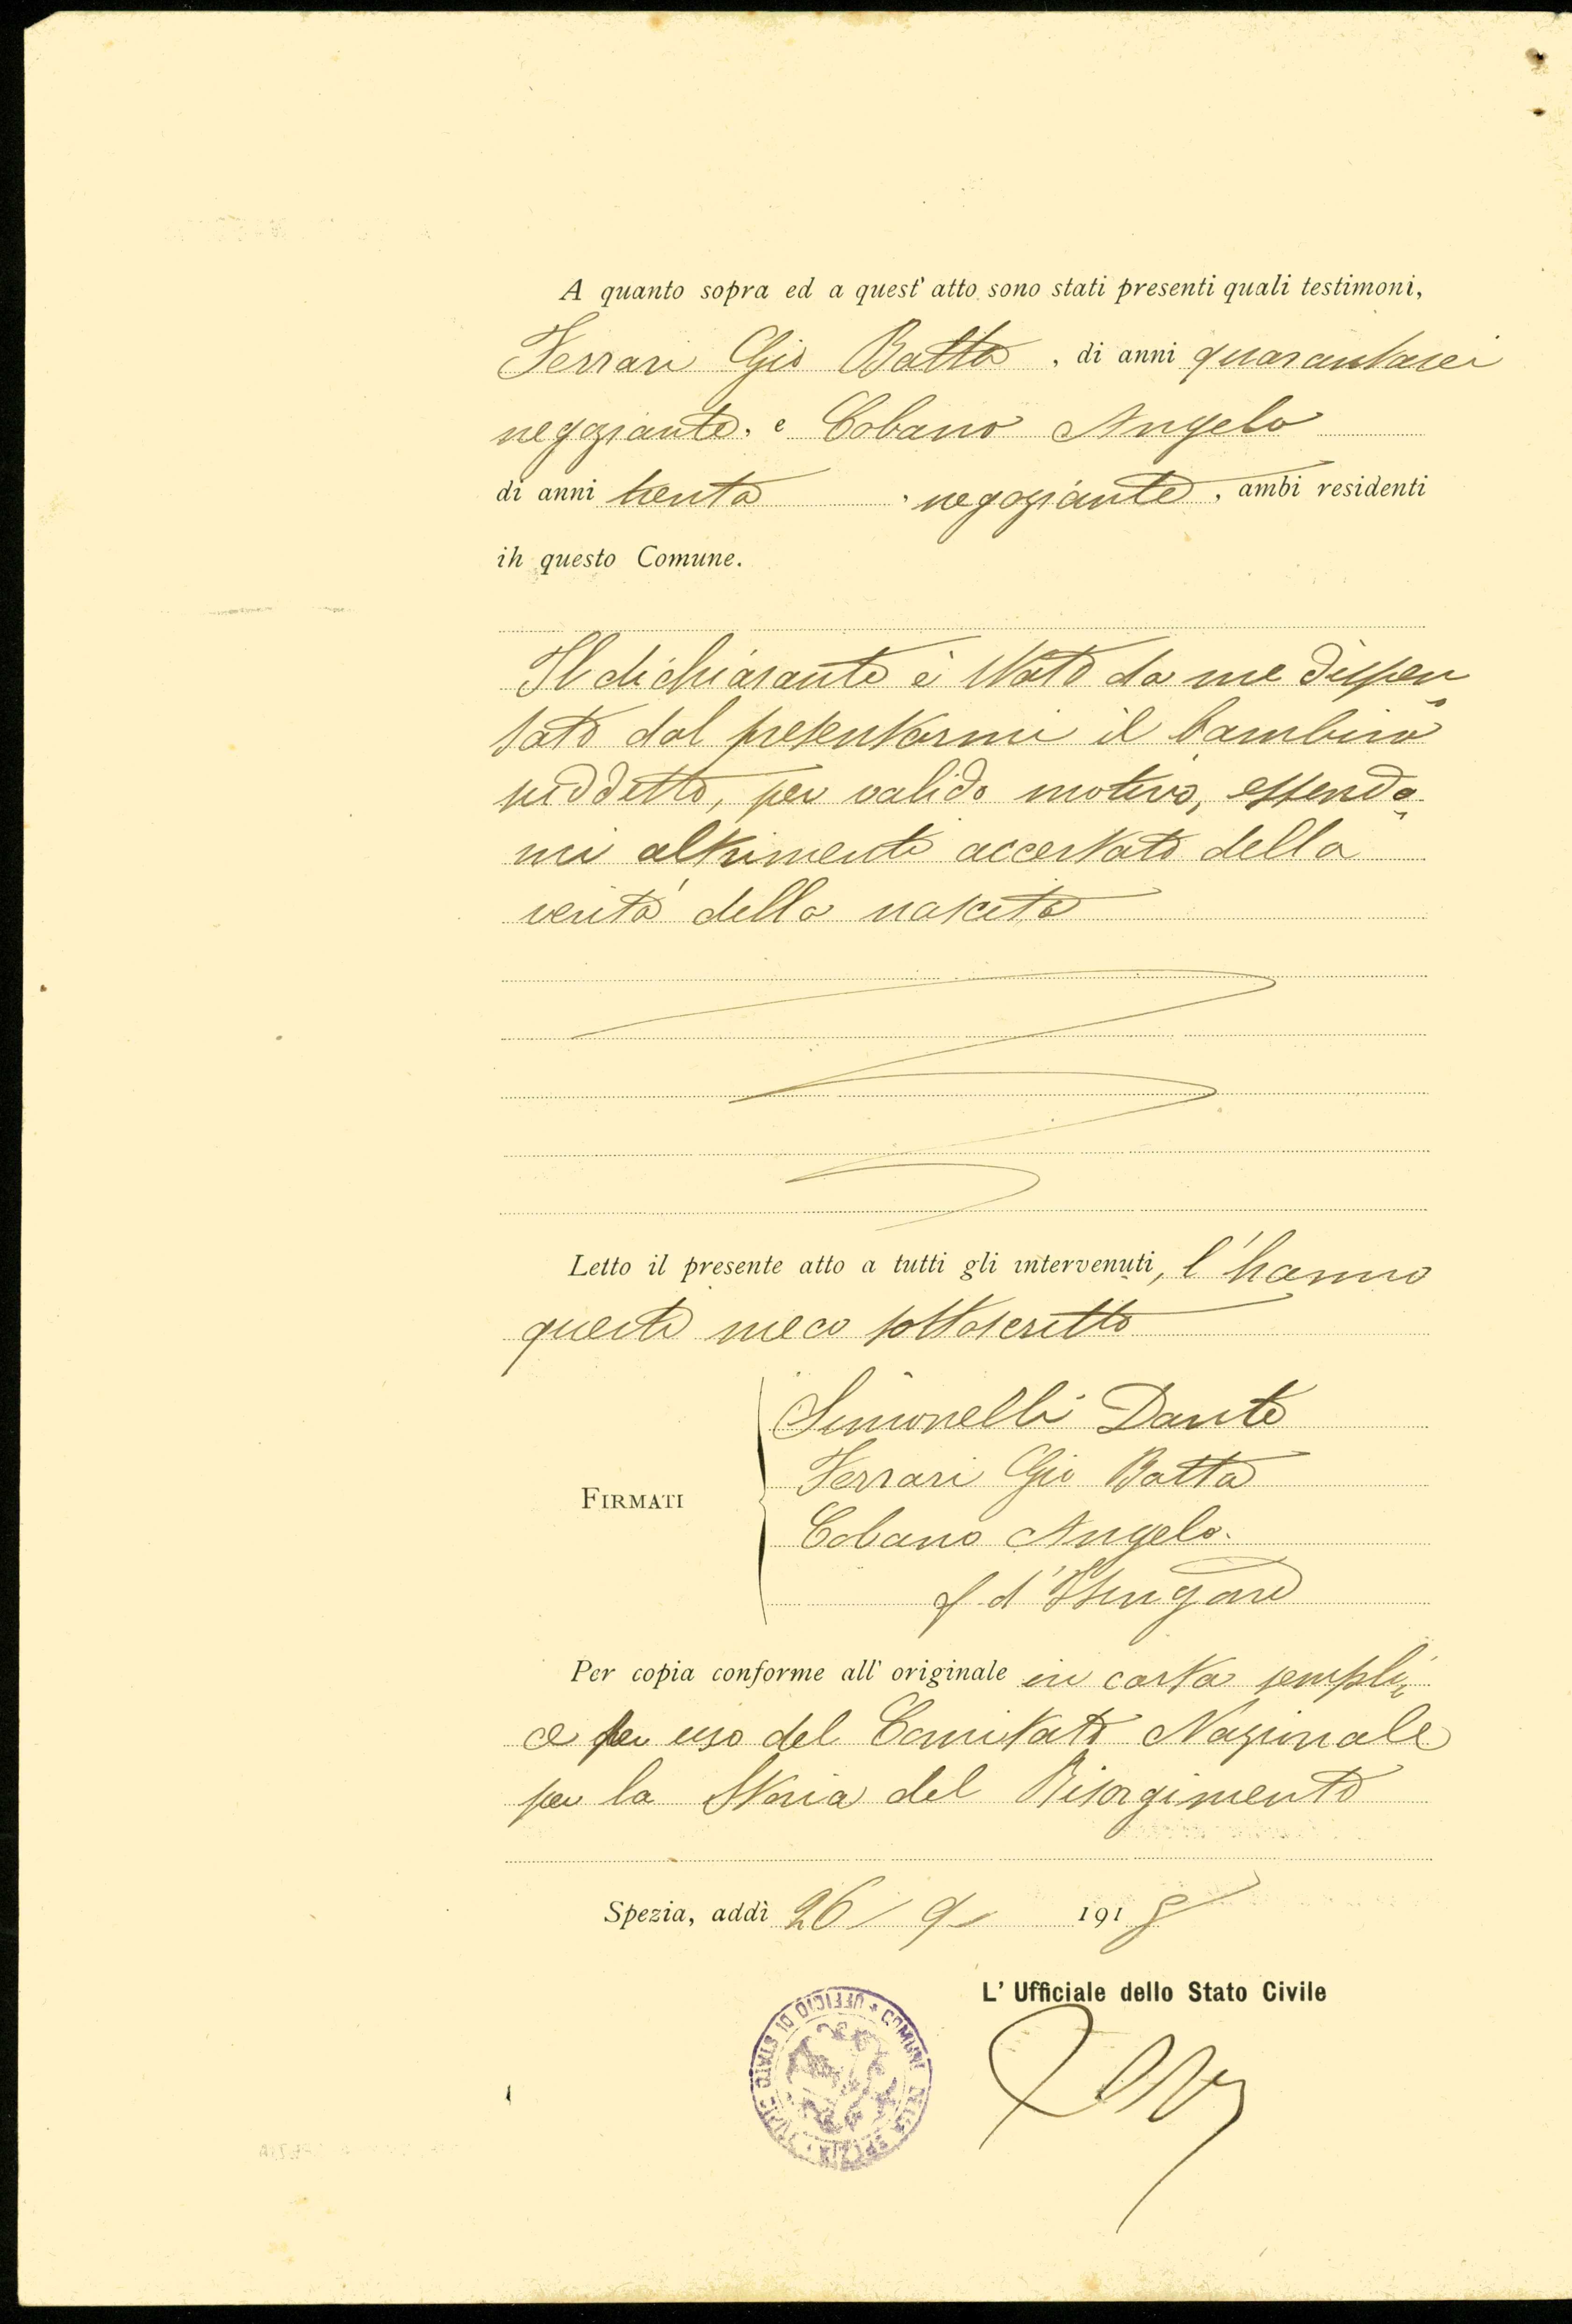 A quanto sopra ed a quest' atto sono stati presenti quali testimoni,
Ferrari Gio Batta, di anni quarantasei
negoziante, e Cobano Angelo
di anni trenta, negoziante, ambi residenti
ih questo Comune.
Il dichiarante è stato da me dispen
sato dal presentarmi il bambino
suddetto, per valido motivo, essendo
mi altrimenti accertato della
verità della nascita
Letto il presente atto a tutti gli intervenuti, l'hanno
questi meco sottoscritto
FIRMATI
Simonelli Dante
Ferrari Gio Batta
Cobano Angelo.
Per copia conforme all' originale in carta sempli
ce per uso del Comitato Nazionale
per la Storia del Risorgimento
Spezia, addì 26/9 1918
L' Ufficiale dello Stato Civile
COMUNE DELLA SPEZIA * UFFICIO DI STATO CIVILE